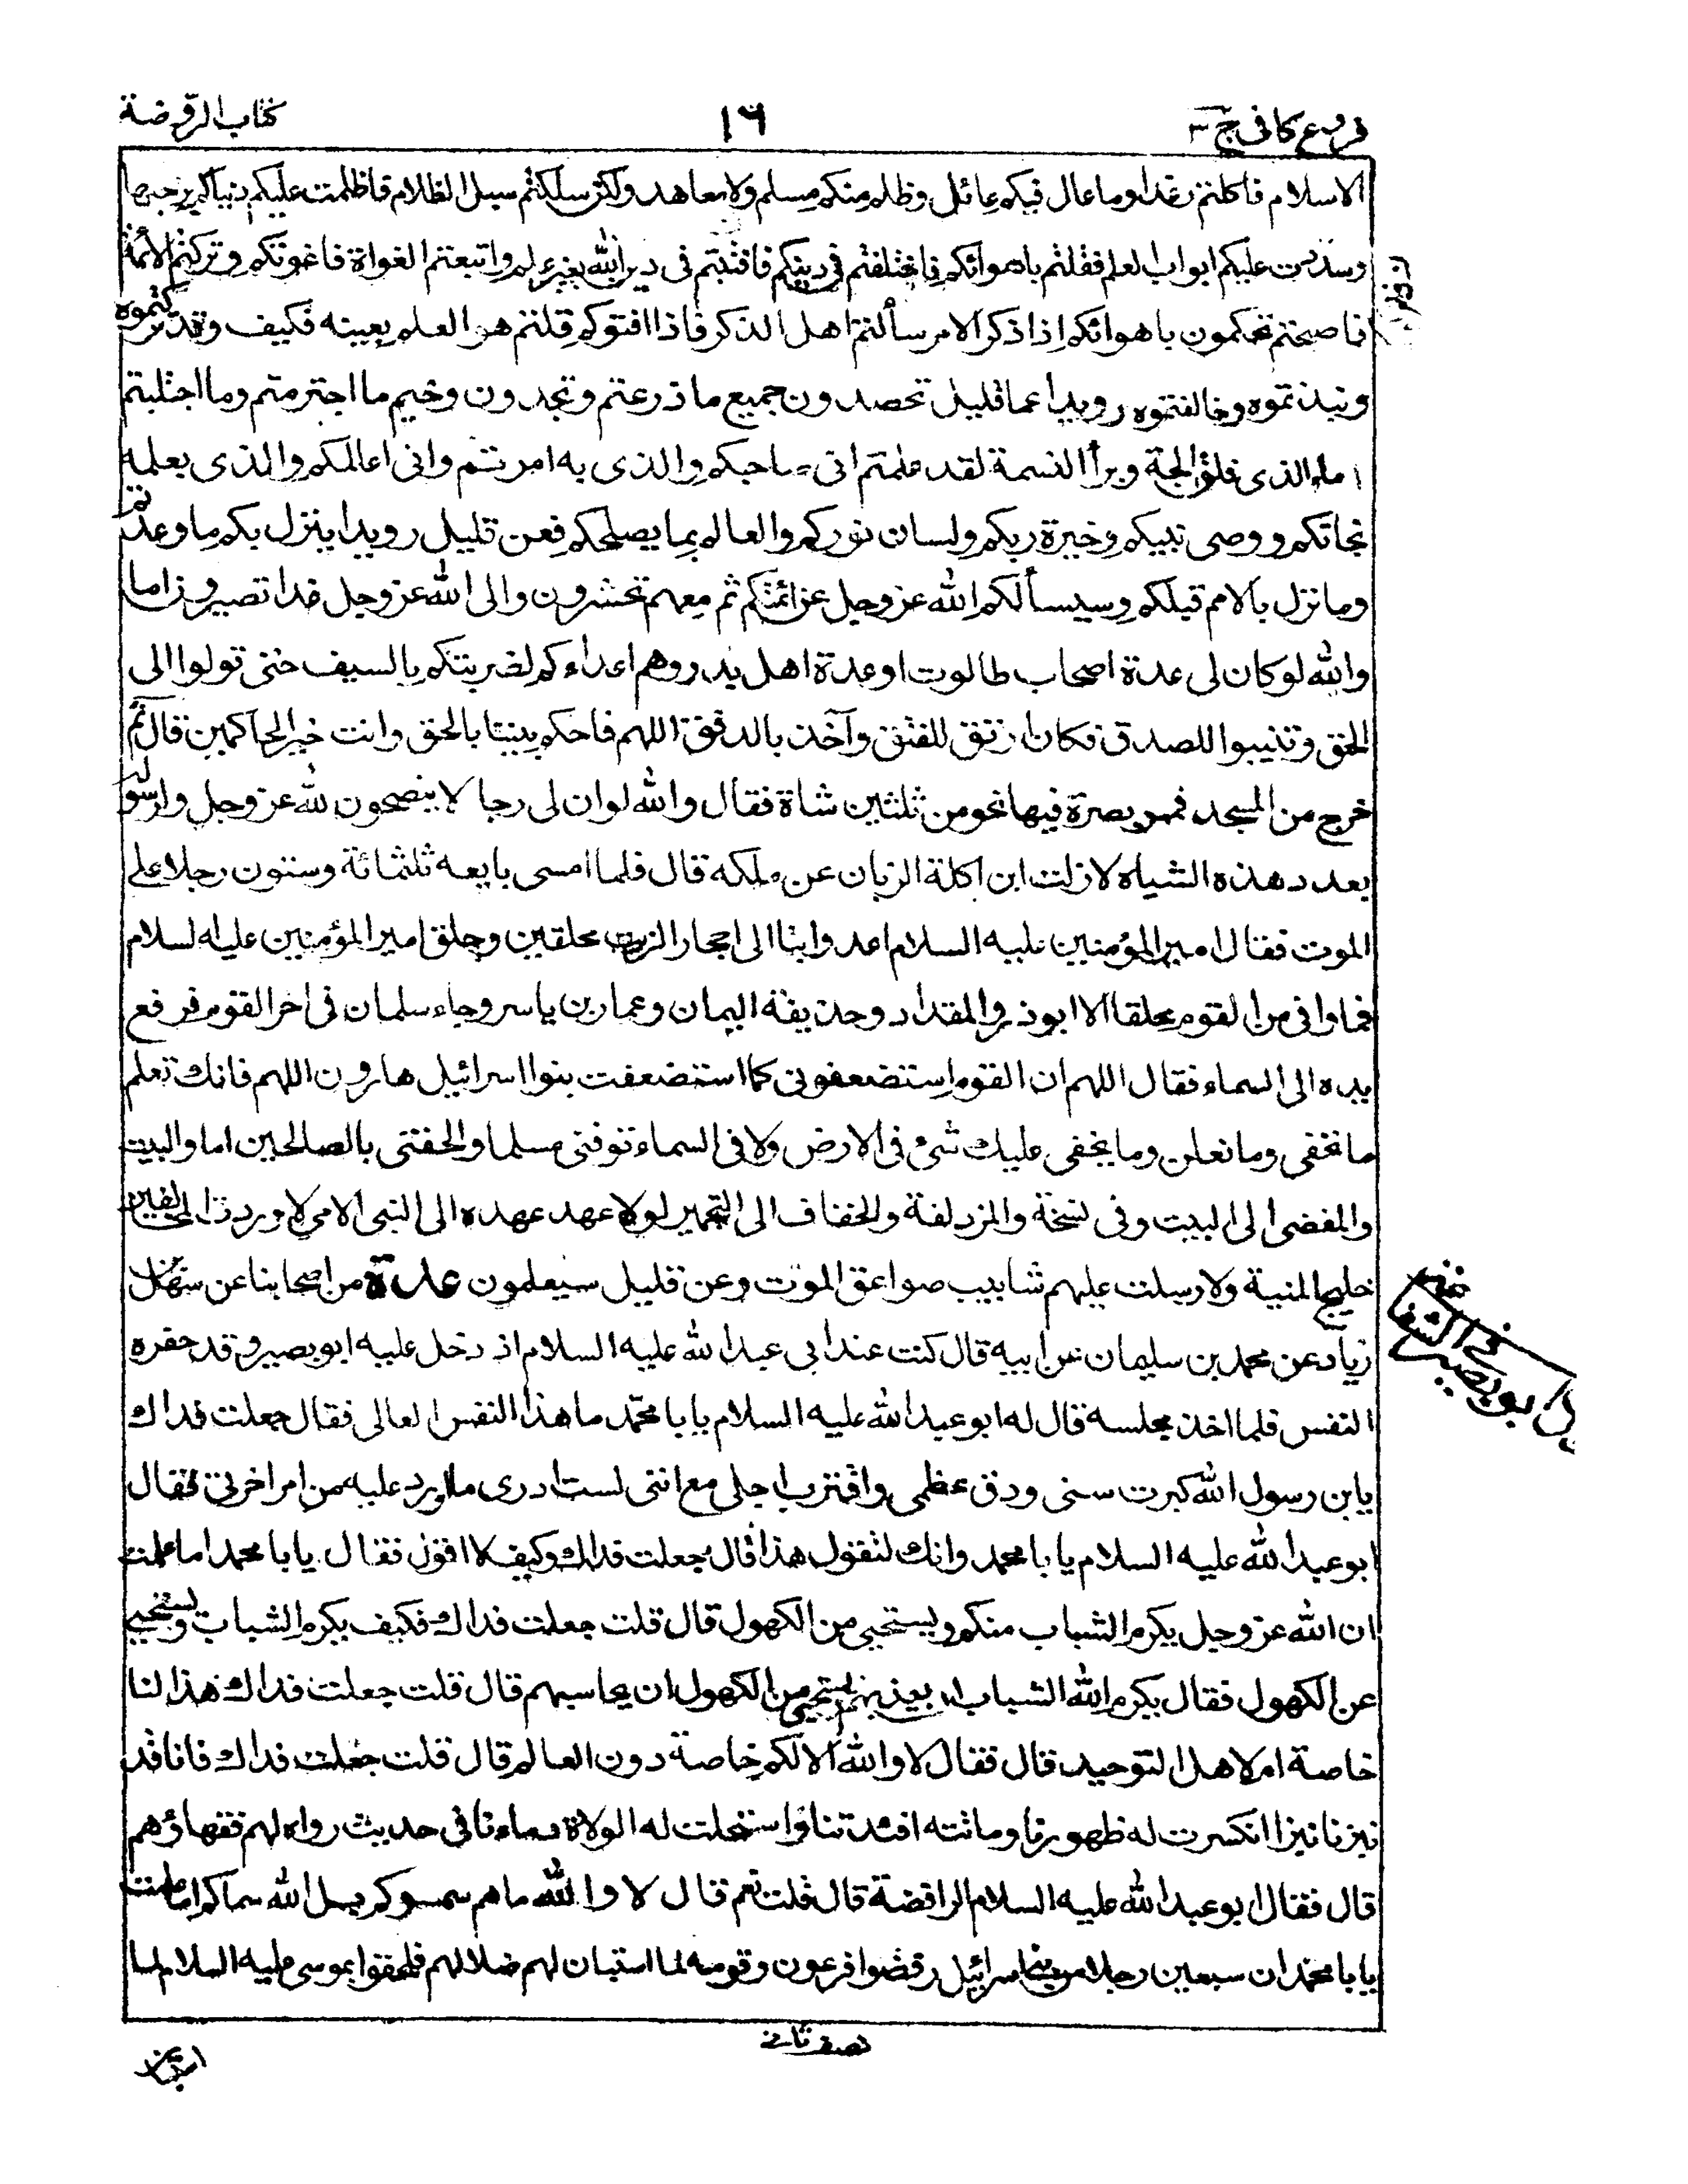 فروع كافى ج ٣
١٦
كتاب الروضة
الاسلام فاكلتم رغدا وما عال فيكم عائل وظلم منكم مسلم ولا معاهد ولكن سلكتم سبيل الظلام فاظلمت عليكم دنياكم برحبها
وسدت عليكم ابواب العلم فقلتم باهوائكم فاختلفتم فى دينكم فافتيتم فى دين الله بغير علم واتبعتم الغواة فاغوتكم وتركتم الائمة
فاصبحتم تحكمون باهوائكم اذا ذكر الامر سألتم اهل الذكر فاذا افتوكم قلتم هو العلم بعينه فكيف وقد تركتموه
ونبذتموه وخالفتموه رويدا عما قليل تحصدون جميع ما زرعتم وتجدون وخيم ما اجترمتم وما اجتلبتم
والذى فلق الحبة وبرأ النسمة لقد علمتم انى صاحبكم والذى به امرتم وانى عالمكم والذى بعلمه
نجاتكم ووصى نبيكم وخيرة ربكم ولسان نوركم والعالم بما يصلحكم فعن قليل رويدا ينزل بكم ما وعدتم
وما نزل بالامم قبلكم وسيسألكم الله عز وجل عن ائمتكم ثم معهم تحشرون والى الله عز وجل غدا تصيرون اما
والله لو كان لى عدة اصحاب طالوت او عدة اهل بدر وهم اعداءكم لضربتكم بالسيف حتى تولوا الى
الحق وتنيبوا للصدق فكان ارتق للفتق وآخذ بالرفق اللهم فاحكم بيننا بالحق وانت خير الحاكمين قال ثم
خرج من المسجد فمر بصرة فيها نحو من ثلثين شاة فقال والله لو ان لى رجالا ينصحون لله عز وجل ولرسوله
بعدد هذه الشياه لازلت ابن اكلة الزبان عن ملكه قال فلما امسى بايعه ثلثمائة وستون رجلا على
الموت فقال امير المؤمنين عليه السلام اغدوا بنا الى احجار الزيت محلقين وحلق امير المؤمنين عليه السلام
فما وافى من القوم محلقا الا ابوذر والمقداد وحذيفة اليمان وعمار بن ياسر وجاء سلمان فى اخر القوم فرفع
يده الى السماء فقال اللهم ان القوم استضعفونى كما استضعفت بنوا اسرائيل هارون اللهم فانك تعلم
ما نخفى وما نعلن وما يخفى عليك شئ فى الارض ولا فى السماء توفنى مسلما والحقنى بالصالحين اما والبيت
والمفضى الى البيت وفى نسخة والمزدلفة والخفاف الى التجمير لولا عهد عهده الى النبى الامى لاوردت المخالفين
خليج المنية ولارسلت عليهم شابيب صواعق الموت وعن قليل سيعلمون عدة من اصحابنا عن سهل بن
زياد عن محمد بن سليمان عن ابيه قال كنت عند ابى عبد الله عليه السلام اذ دخل عليه ابو بصير وقد حفره
النفس فلما اخذ مجلسه قال له ابو عبد الله عليه السلام يا با محمد ما هذا النفس العالى فقال جعلت فداك
يا بن رسول الله كبرت سنى ودق عظمى واقترب اجلى مع اننى لست ادرى ما ارد عليه من امر اخرتى فقال
ابو عبد الله عليه السلام يا با محمد وانك لتقول هذا قال جعلت فداك وكيف لا اقول فقال يا با محمد اما علمت
ان الله عز وجل يكرم الشباب منكم ويستحيى من الكهول قال قلت جعلت فداك فكيف يكرم الشباب ويستحيى
عن الكهول فقال يكرم الله الشباب ان يعذبهم ويستحيى من الكهول ان يحاسبهم قال قلت جعلت فداك هذا لنا
خاصة ام لاهل التوحيد قال فقال لا والله الا لكم خاصة دون العالم قال قلت جعلت فداك فانا قد
نبزنا نبزا انكسرت له ظهورنا وماتته افئدتنا واستحلت له الولاة دماءنا فى حديث رواه لهم فقهاؤهم
قال فقال ابو عبد الله عليه السلام الرافضة قال قلت نعم قال لا والله ما هم سموكم بل الله سماكم اما علمت
يا با محمد ان سبعين رجلا من بنى اسرائيل رفضوا فرعون وقومه لما استبان لهم ضلالهم فلحقوا بموسى عليه السلام لما
نصف ثانى